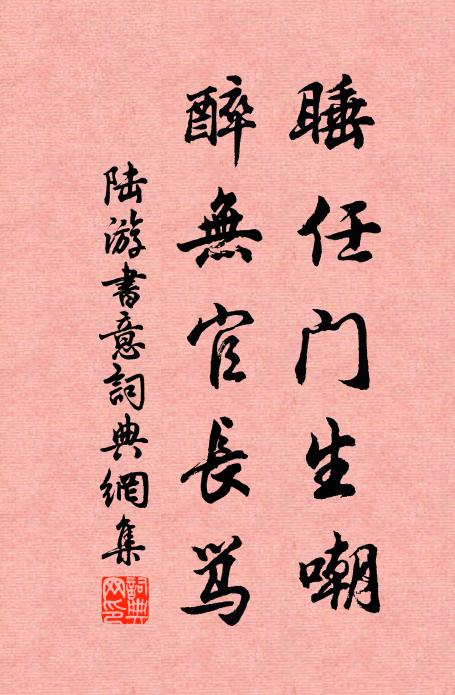 睡任门生嘲
醉無官長骂
陆游書意詞典網集
詞典網印